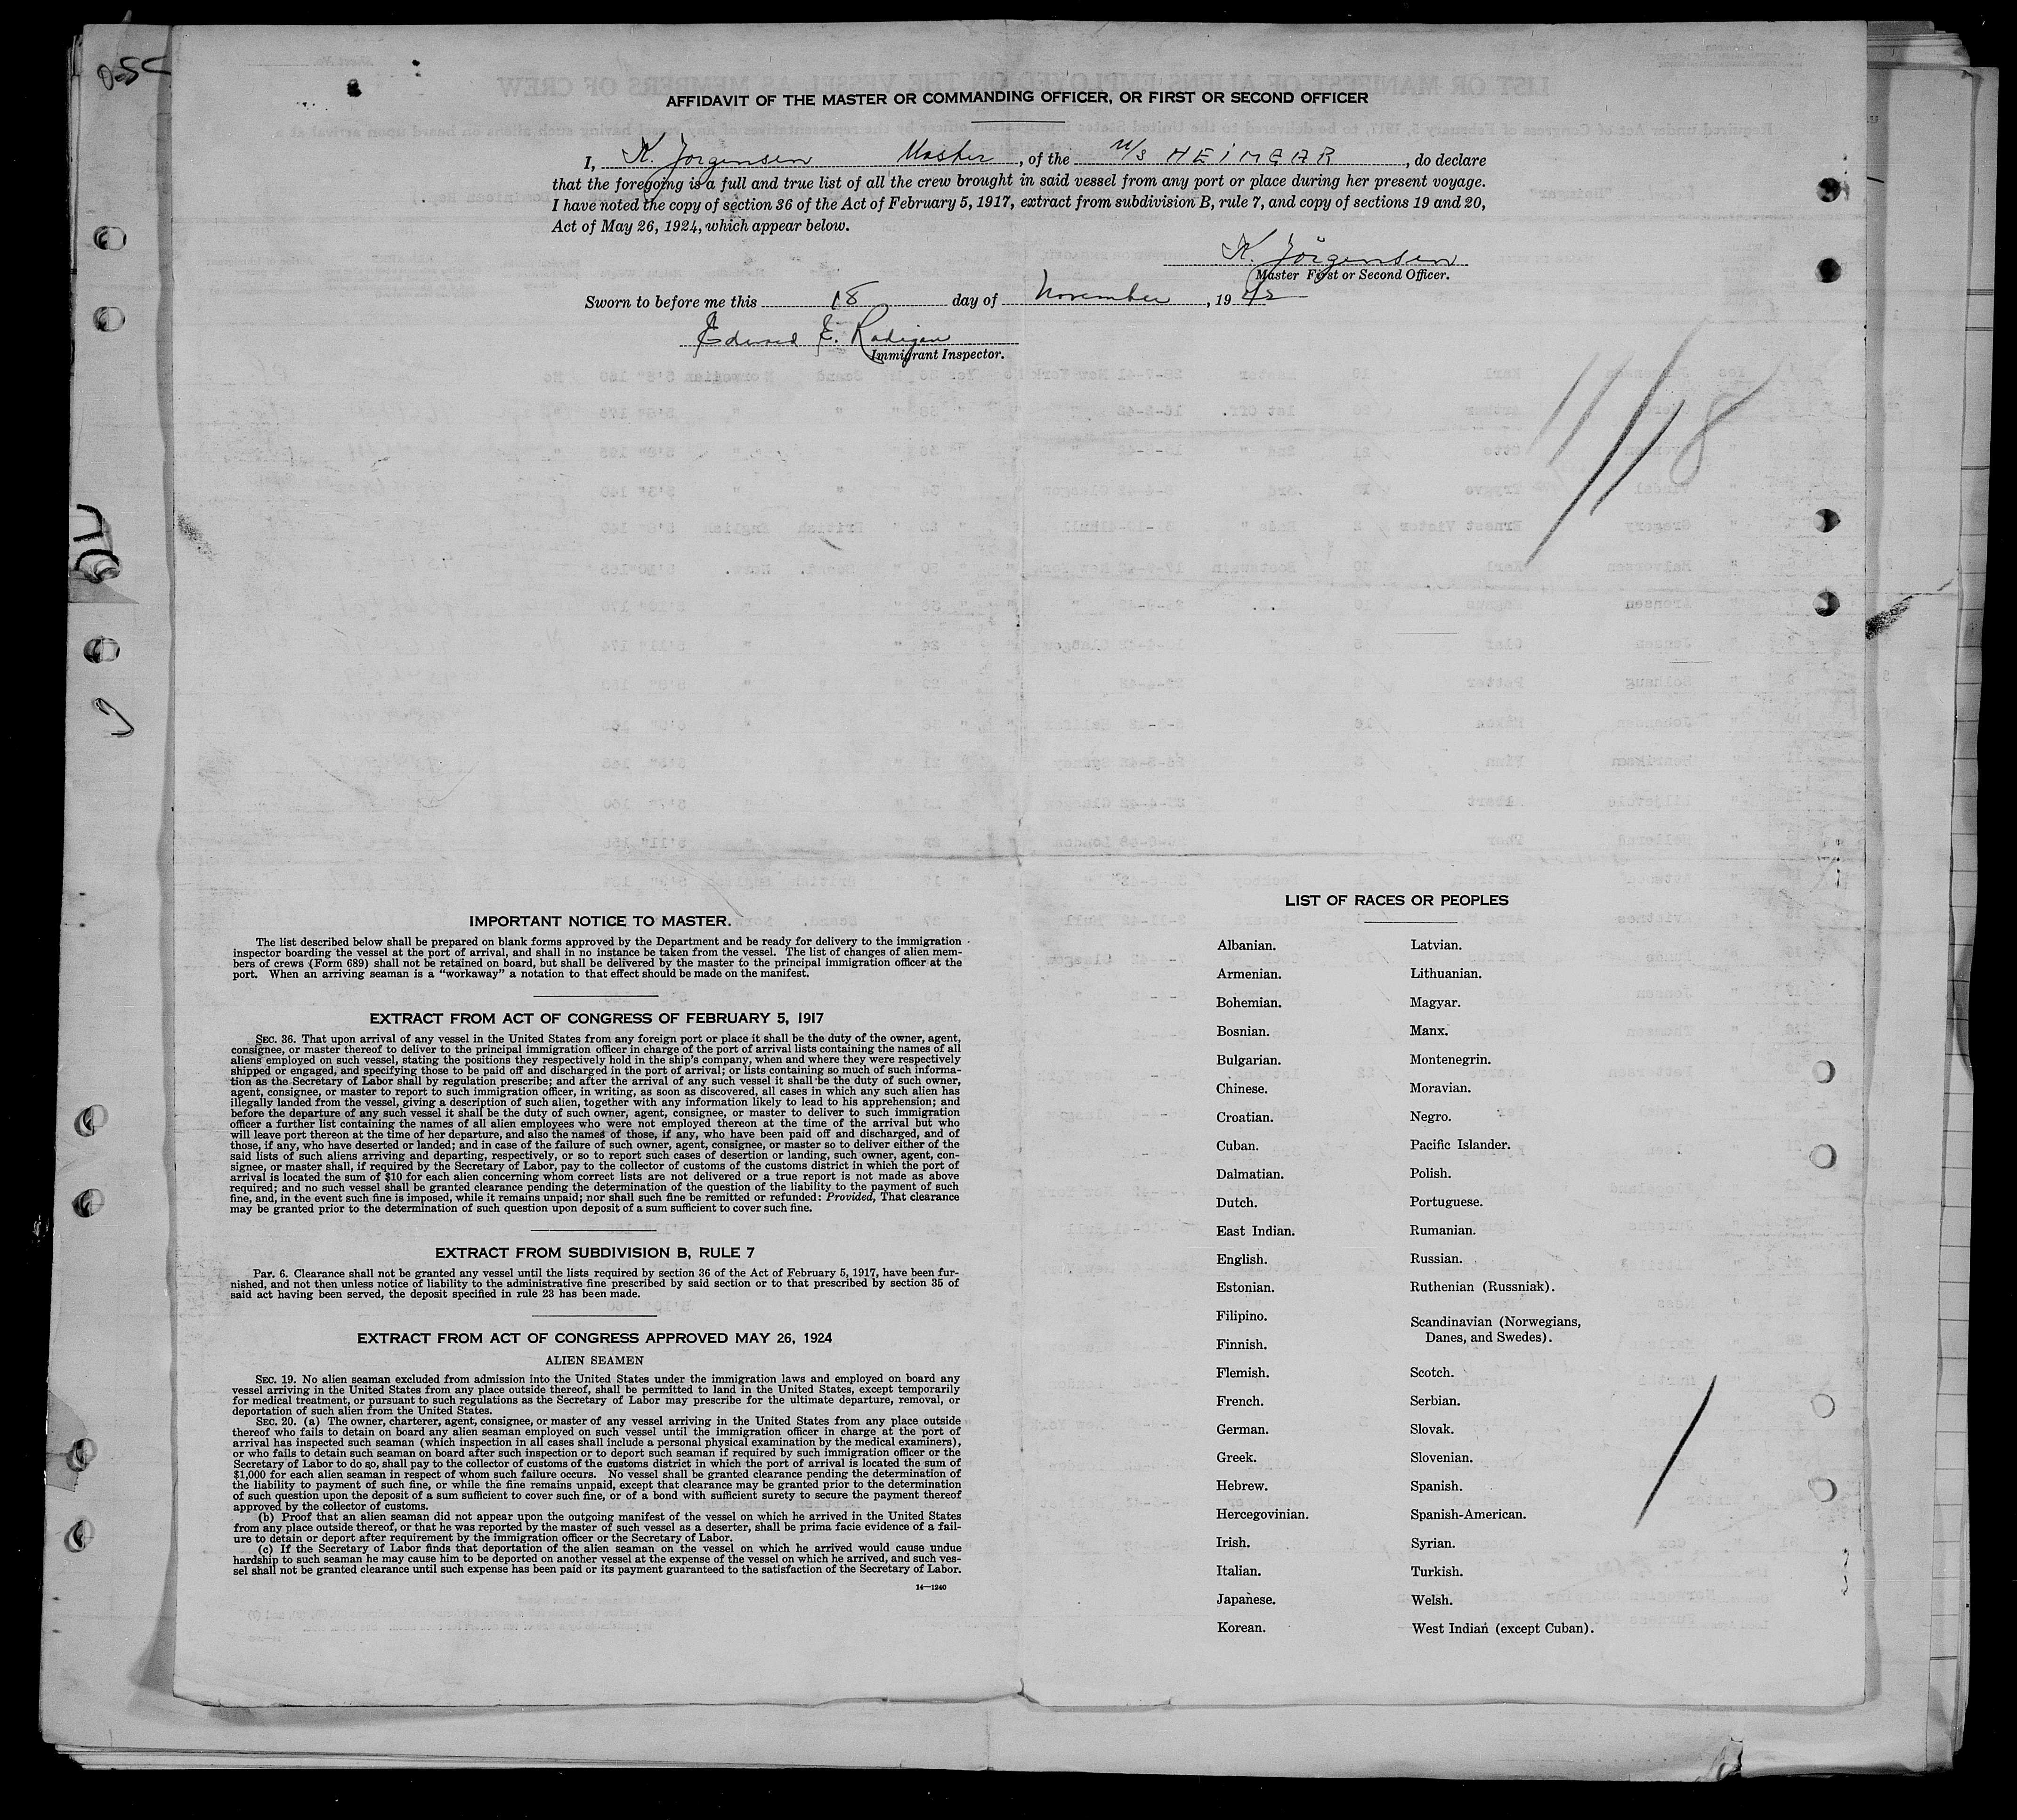 AFFIDAVIT OF THE MASTER OR COMMANDING OFFICER, OR FIRST OR SECOND OFFICER
I, K. Jorgensen Master, of the M/S HEIMGAR, do declare
that the foregoing is a full and true list of all the crew brought in said vessel from any port or place during her present voyage.
I have noted the copy of section 36 of the Act of February 5, 1917, extract from subdivision B, rule 7, and copy of sections 19 and 20,
Act of May 26, 1924, which appear below.
K. Jörgensen
Master First or Second Officer.
Sworn to before me this 18 day of November, 1942
Edward E. Radigan
Immigrant Inspector.
11/18
IMPORTANT NOTICE TO MASTER.
The list described below shall be prepared on blank forms approved by the Department and be ready for delivery to the immigration
inspector boarding the vessel at the port of arrival, and shall in no instance be taken from the vessel. The list of changes of alien mem-
bers of crews (Form 689) shall not be retained on board, but shall be delivered by the master to the principal immigration officer at the
port. When an arriving seaman is a “workaway” a notation to that effect should be made on the manifest.
EXTRACT FROM ACT OF CONGRESS OF FEBRUARY 5, 1917
SEC. 36. That upon arrival of any vessel in the United States from any foreign port or place it shall be the duty of the owner, agent,
consignee, or master thereof to deliver to the principal immigration officer in charge of the port of arrival lists containing the names of all
aliens employed on such vessel, stating the positions they respectively hold in the ship's company, when and where they were respectively
shipped or engaged, and specifying those to be paid off and discharged in the port of arrival; or lists containing so much of such informa-
tion as the Secretary of Labor shall by regulation prescribe; and after the arrival of any such vessel it shall be the duty of such owner,
agent, consignee, or master to report to such immigration officer, in writing, as soon as discovered, all cases in which any such alien has
illegally landed from the vessel, giving a description of such alien, together with any information likely to lead to his apprehension; and
before the departure of any such vessel it shall be the duty of such owner, agent, consignee, or master to deliver to such immigration
officer a further list containing the names of all alien employees who were not employed thereon at the time of the arrival but who
will leave port thereon at the time of her departure, and also the names of those, if any, who have been paid off and discharged, and of
those, if any, who have deserted or landed; and in case of the failure of such owner, agent, consignee, or master so to deliver either of the
said lists of such aliens arriving and departing, respectively, or so to report such cases of desertion or landing, such owner, agent, con-
signee, or master shall, if required by the Secretary of Labor, pay to the collector of customs of the customs district in which the port of
arrival is located the sum of $10 for each alien concerning whom correct lists are not delivered or a true report is not made as above
required; and no such vessel shall be granted clearance pending the determination of the question of the liability to the payment of such
fine, and, in the event such fine is imposed, while it remains unpaid; nor shall such fine be remitted or refunded: Provided, That clearance
may be granted prior to the determination of such question upon deposit of a sum sufficient to cover such fine.
EXTRACT FROM SUBDIVISION B, RULE 7
PAR. 6. Clearance shall not be granted any vessel until the lists required by section 36 of the Act of February 5, 1917, have been fur-
nished, and not then unless notice of liability to the administrative fine prescribed by said section or to that prescribed by section 35 of
said act having been served, the deposit specified in rule 23 has been made.
EXTRACT FROM ACT OF CONGRESS APPROVED MAY 26, 1924
ALIEN SEAMEN
SEC. 19. No alien seaman excluded from admission into the United States under the immigration laws and employed on board any
vessel arriving in the United States from any place outside thereof, shall be permitted to land in the United States, except temporarily
for medical treatment, or pursuant to such regulations as the Secretary of Labor may prescribe for the ultimate departure, removal, or
deportation of such alien from the United States.
SEC. 20. (a) The owner, charterer, agent, consignee, or master of any vessel arriving in the United States from any place outside
thereof who fails to detain on board any alien seaman employed on such vessel until the immigration officer in charge at the port of
arrival has inspected such seaman (which inspection in all cases shall include a personal physical examination by the medical examiners),
or who fails to detain such seaman on board after such inspection or to deport such seaman if required by such immigration officer or the
Secretary of Labor to do so, shall pay to the collector of customs of the customs district in which the port of arrival is located the sum of
$1,000 for each alien seaman in respect of whom such failure occurs. No vessel shall be granted clearance pending the determination of
the liability to payment of such fine, or while the fine remains unpaid, except that clearance may be granted prior to the determination
of such question upon the deposit of a sum sufficient to cover such fine, or of a bond with sufficient surety to secure the payment thereof
approved by the collector of customs.
(b) Proof that an alien seaman did not appear upon the outgoing manifest of the vessel on which he arrived in the United States
from any place outside thereof, or that he was reported by the master of such vessel as a deserter, shall be prima facie evidence of a fail-
ure to detain or deport after requirement by the immigration officer or the Secretary of Labor.
(c) If the Secretary of Labor finds that deportation of the alien seaman on the vessel on which he arrived would cause undue
hardship to such seaman he may cause him to be deported on another vessel at the expense of the vessel on which he arrived, and such ves-
sel shall not be granted clearance until such expense has been paid or its payment guaranteed to the satisfaction of the Secretary of Labor.
14—1240
LIST OF RACES OR PEOPLES
Albanian.
Armenian.
Bohemian.
Bosnian.
Bulgarian.
Chinese.
Croatian.
Cuban.
Dalmatian.
Dutch.
East Indian.
English.
Estonian.
Filipino.
Finnish.
Flemish.
French.
German.
Greek.
Hebrew.
Hercegovinian.
Irish.
Italian.
Japanese.
Korean.
Latvian.
Lithuanian.
Magyar.
Manx.
Montenegrin.
Moravian.
Negro.
Pacific Islander.
Polish.
Portuguese.
Rumanian.
Russian.
Ruthenian (Russniak).
Scandinavian (Norwegians,
Danes, and Swedes).
Scotch.
Serbian.
Slovak.
Slovenian.
Spanish.
Spanish-American.
Syrian.
Turkish.
Welsh.
West Indian (except Cuban).